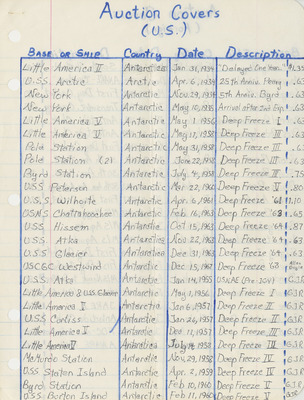 Auction Covers
(U.S.)
Base or Ship Country Date Description
Little America II Antarctica Jan. 31, 1934 "Delayed One Year"
U.S.S. Arctic Arctic Apr. 6, 1934 25th Anniv. Peary .63
New York Antarctic Nov. 29, 1934 5th Anniv. Byrd .63
New York Antarctic May 10, 1935 Arrival after 2nd Exp.
Little America V Antarctic May 1, 1956 Deep Freeze I .63
Little America V Antarctic May 17, 1958 Deep Freeze III .63
Pole Station Antarctic May 31, 1958 Deep Freeze III
Pole Station (2) Antarctic June 22, 1958 Deep Freeze III
Byrd Station Antarctic July 4, 1958 Deep Freeze III .75
USS Peterson Antarctic Mar. 22, 1960 Deep Freeze V
U.S.S. Wilhoite Antarctic Apr. 6, 1961 Deep Freeze '61 1.10
USNS Chattahoochee Antarctic Feb. 16, 1963 Deep Freeze '63
USS Hissem Antarctic Oct. 15, 1963 Deep Freeze '64 .87
USS Atka Antarctic Nov. 22, 1963 Deep Freeze '64 .63
USS Glacier Antarctic Dec. 31, 1963 Deep Freeze '64 .63
USCGC Westwind Antarctic Dec. 15, 1967 Deep Freeze '68
USS Atka Antarctic Jan. 14, 1955 USNAE (Pre-IGY) G.J.R
Little America & USS Glacier Antarctic May 1, 1956 Deep Freeze I G.J.R
Little America V Antarctic Jan. 6, 1957 Deep Freeze II G.J.R
U.S.S. Curtiss Antarctic Jan. 26, 1957 Deep Freeze II G.J.R
Little America V Antarctic Dec. 12, 1957 Deep Freeze III G.J.R
Little America V Antarctic July 1958 Deep Freeze III G.J.R
McMurdo Station Antarctic Nov. 29, 1958 Deep Freeze IV G.J.R
USS Staten Island Antarctic Apr. 2, 1959 Deep Freeze IV G.J.R
Byrd Station Antarctic Feb. 10, 1960 Deep Freeze V G.J.R
USS Burton Island Antarctic Feb. 11, 1960 Deep Freeze V